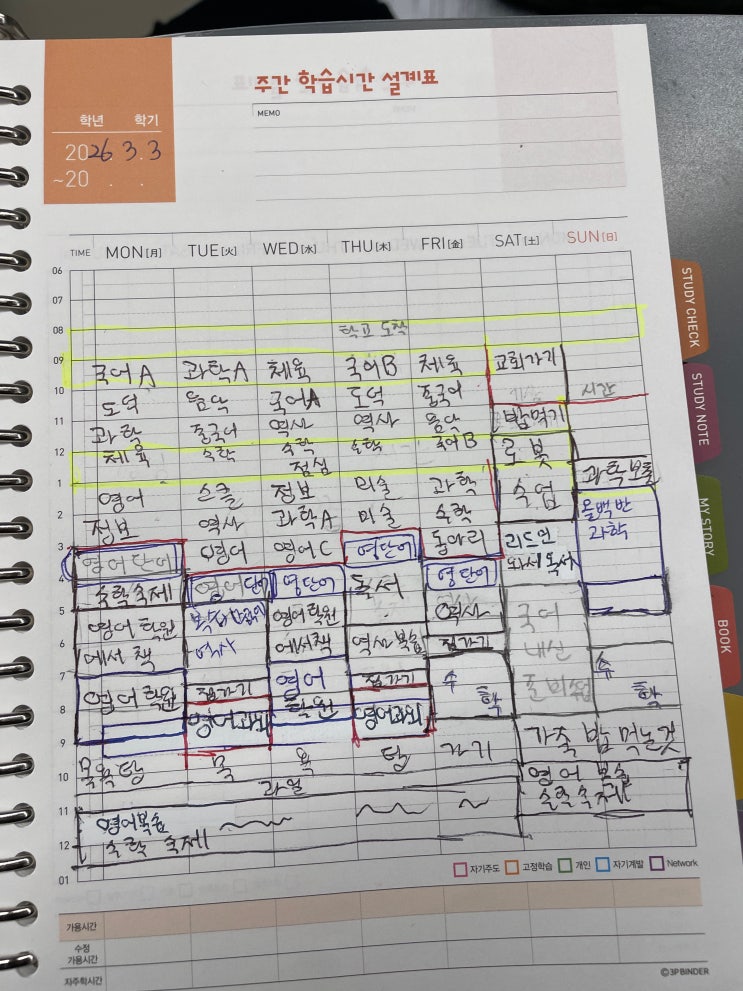 주간 학습시간 설계표
학년 학기
2026 3. 3
~20 . .
MEMO
TIME MON[月] TUE[火] WED[水] THU[木] FRI[金] SAT[土] SUN[日]
06
07
08 학교 도착
09 국어A 과학A 체육 국어B 체육 교회가기
10 도덕 음악 국어A 도덕 중국어 시간
11 과학 중국어 역사 역사 음악 밥먹기
12 체육 수학 수학 수학 국어B 로봇
점심
1 영어 스클 정보 미술 과학 수업 과학보돌
2 정보 역사 과학A 미술 수학 올백반
과학
3 영어단어 영어C 영단어 동아리 리드인
와서 독서
4 수학숙제 영어단어 영단어 독서 영단어
5 영어학원 영어학원 역사 국어
6 에서 책 역사 에서책 역사복습 집가기 내신
7 영어학원 집가기 영어 집가기 수 준비 수
8 영어과외 학원 영어과외 학 학
9 가족 밥 먹는것
목욕탕 목 욕 탕 가기
10 과일 영어 복습
수학숙제
11 영어복습
12 수학 숙제
01
자기주도 고정학습 개인 자기계발 Network
가용시간
수정
가용시간
자주학시간
©3P BINDER
STUDY CHECK
STUDY NOTE
MY STORY
BOOK